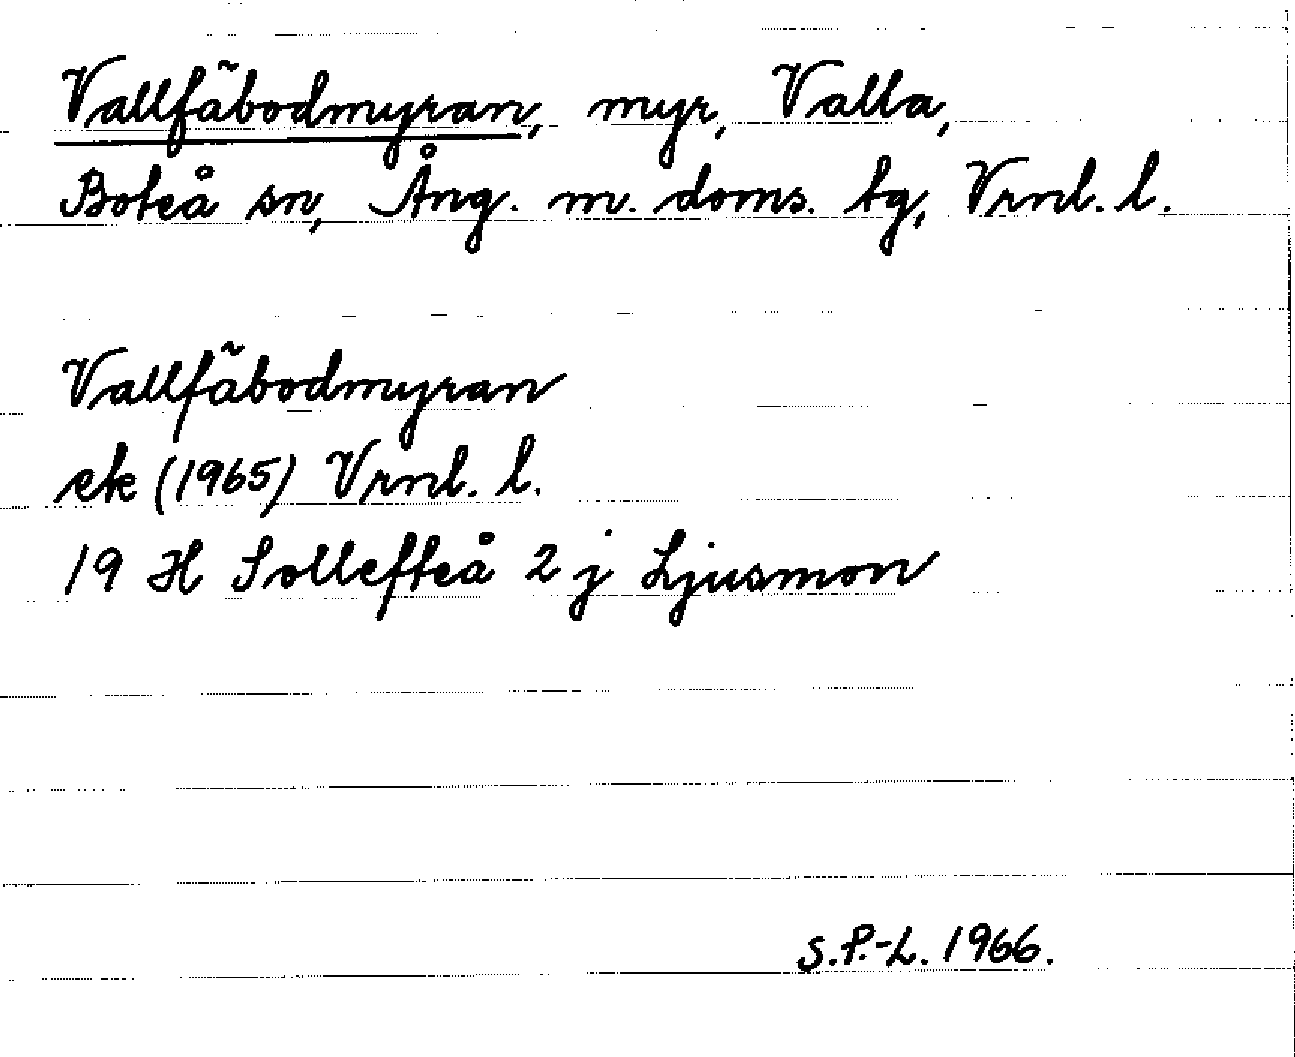 Vallfäbodmyran, myr, Valla,
Boteå sn, Ång. m. doms. tg, Vrnl. l.
Vallfäbodmyran
ek (1965) Vrnl. l.
19 H Sollefteå 2 j Ljusmon
S.P.-L. 1966.